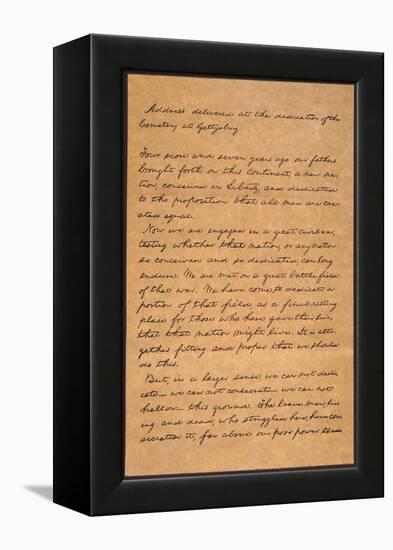 Address delivered at the dedication of the
Cemetery at Gettysburg.
Four score and seven years ago our fathers
brought forth on this continent, a new na-
tion, conceived in Liberty, and dedicated
to the proposition that all men are cre-
ated equal.
Now we are engaged in a great civil war,
testing whether that nation, or any nation
so conceived and so dedicated, can long
endure. We are met on a great battle-field
of that war. We have come to dedicate a
portion of that field, as a final resting
place for those who here gave their lives
that that nation might live. It is alto-
gether fitting and proper that we should
do this.
But, in a larger sense, we can not dedi-
cate— we can not consecrate— we can not
hallow— this ground. The brave men, liv-
ing and dead, who struggled here, have con-
secrated it, far above our poor power to add